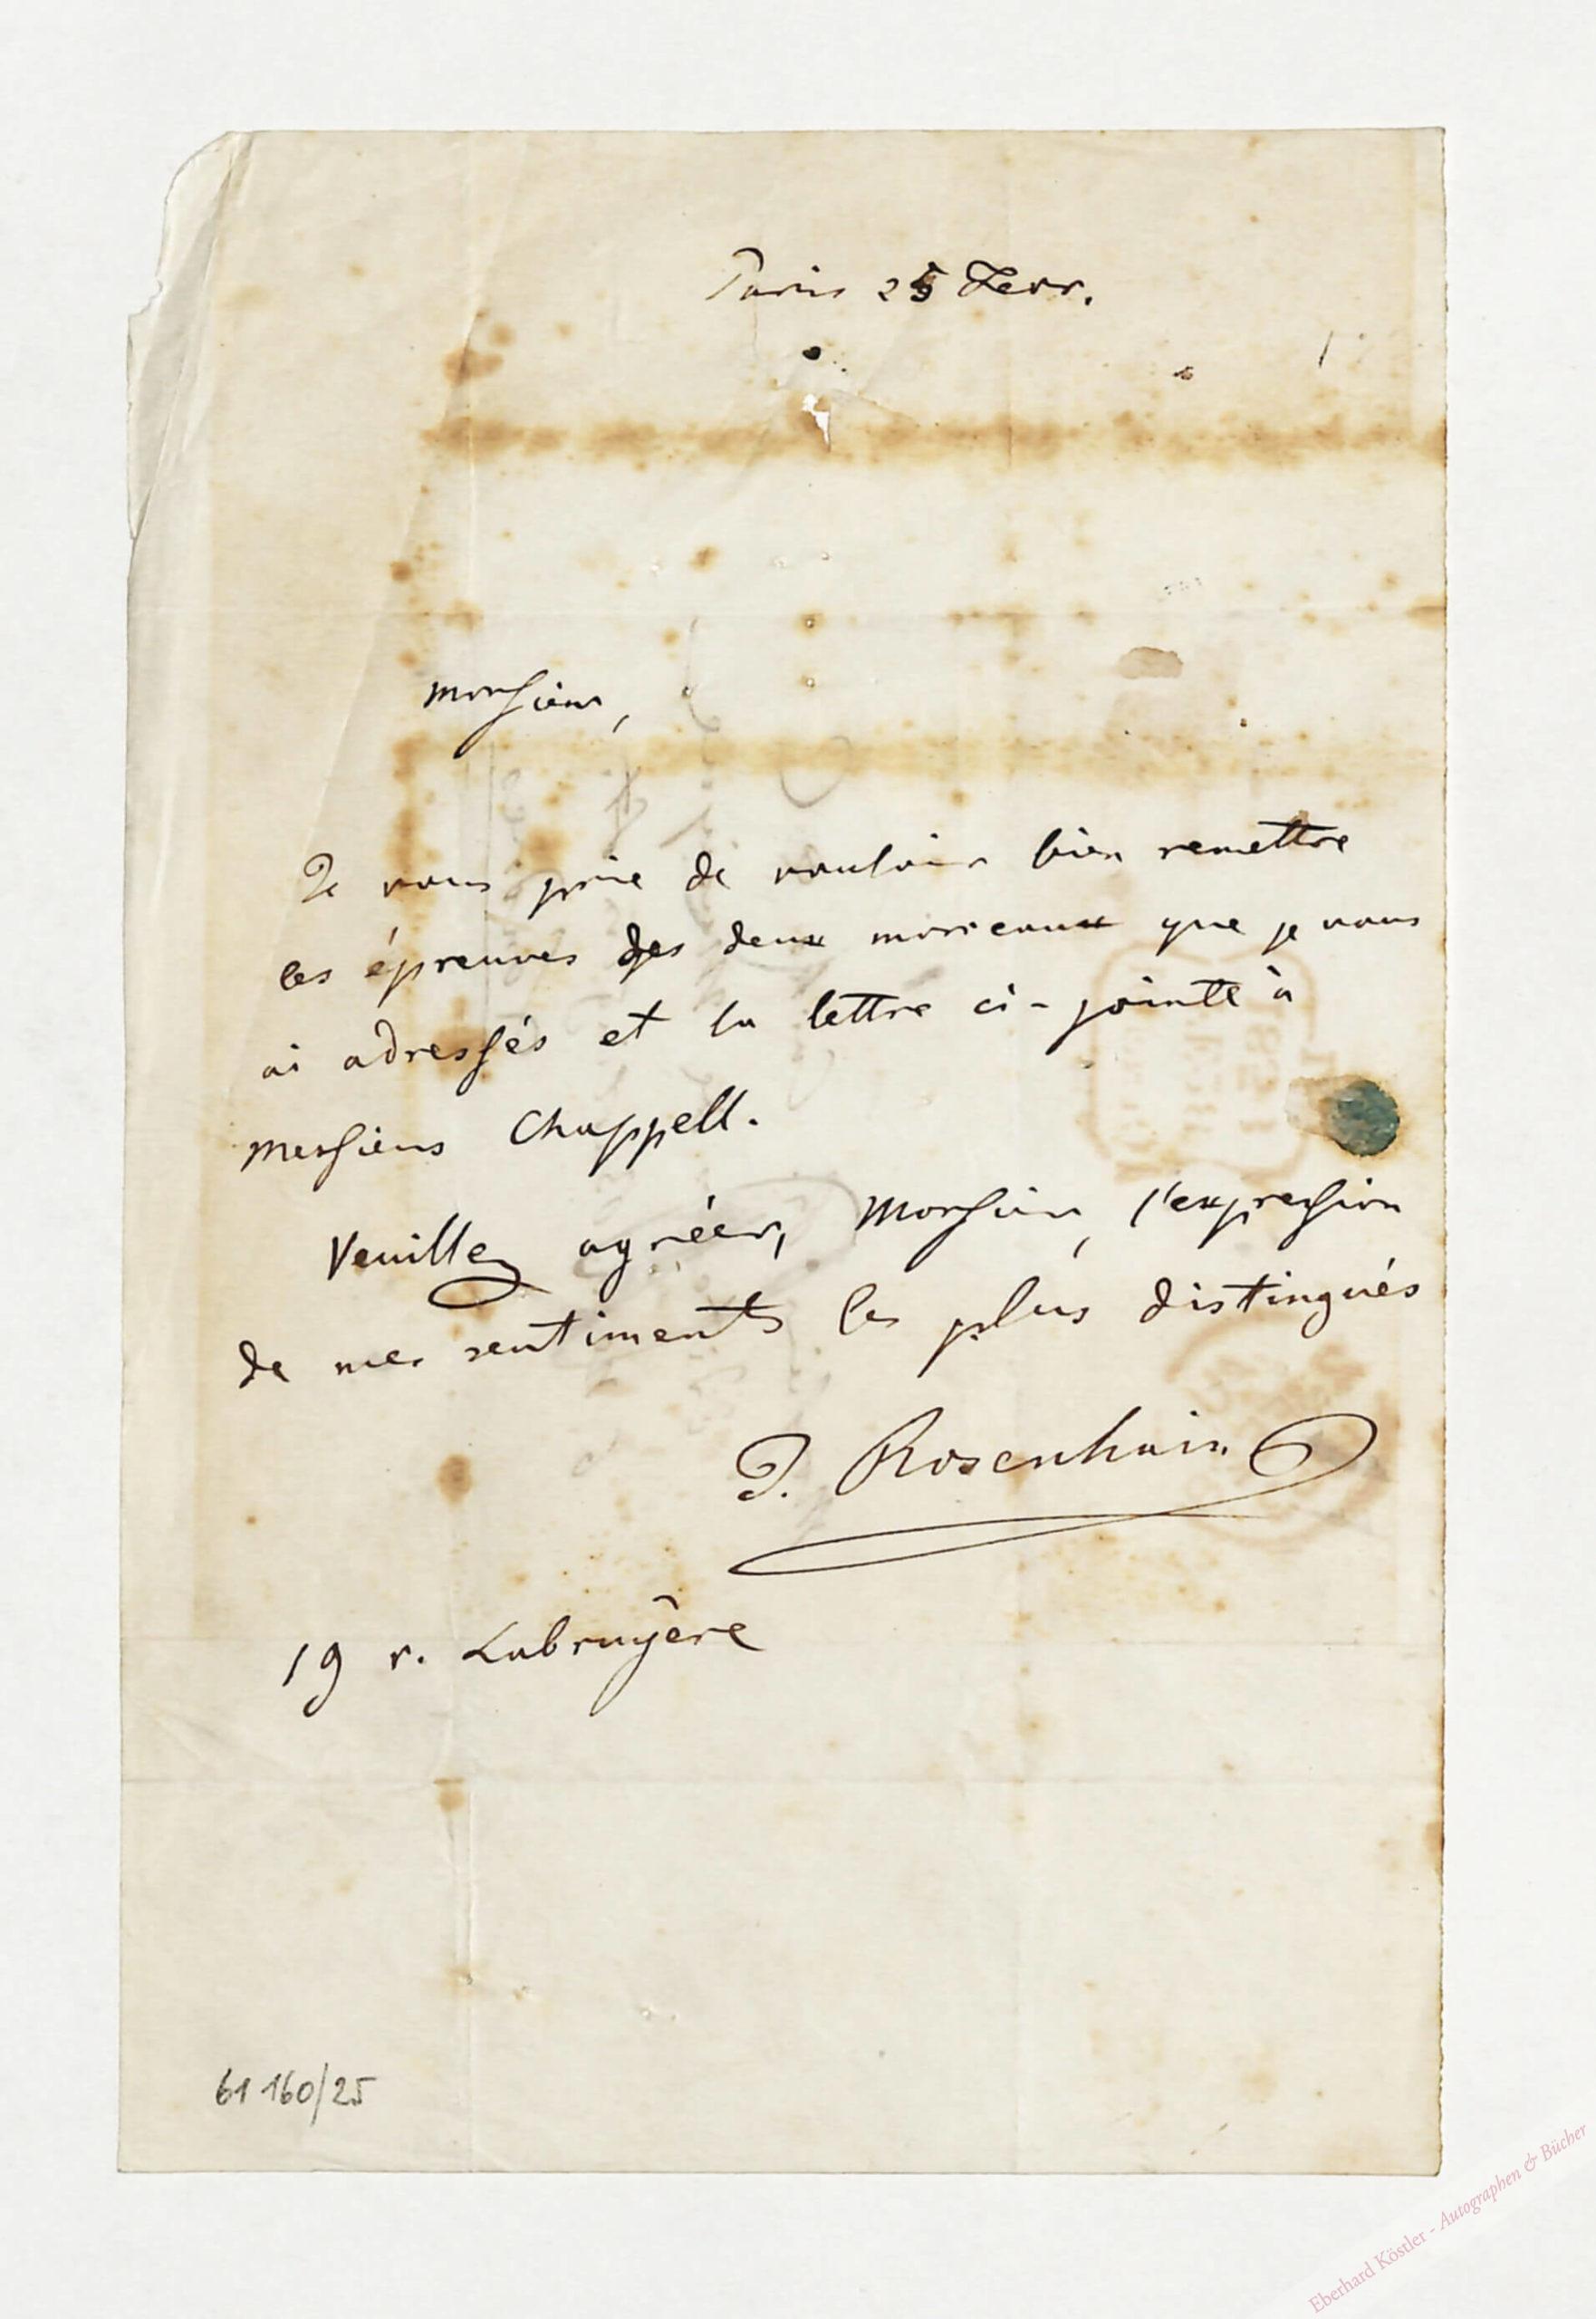 Paris 25 Fevr.
Monsieur,
Je vous prie de vouloir bien remettre
les épreuves des deux morceaux que je vous
ai adressés et la lettre ci-jointe à
Messieurs Chappell.
Veuillez agréer, Monsieur, l'expression
de mes sentiments les plus distingués
J. Rosenhain
19 r. Labruyère
61 160/25
Eberhard Köstler - Autographen & Bücher